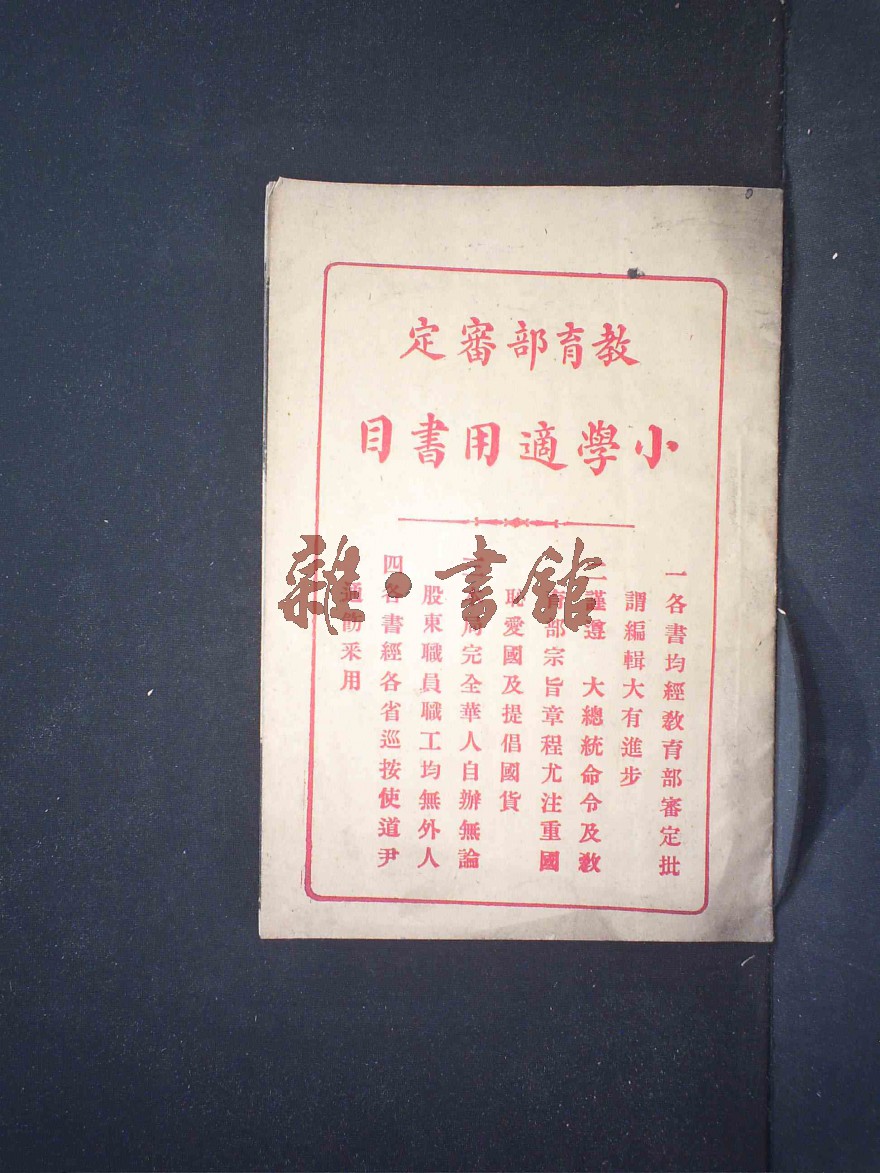 教育部審定
小學適用書目
一各書均經教育部審定批
謂編輯大有進步
二謹遵　大總統命令及教
育部宗旨章程尤注重國
恥愛國及提倡國貨
完全華人自辦無論
股東職員職工均無外人
四各書經各省巡按使道尹
通飭采用
雜·書館